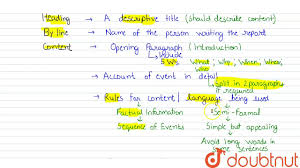 Heading → A descriptive title (should describe content)
By line → Name of the person writing the report
Content → Opening Paragraph (Introduction)
↳ Include
5 Ws What, Why, When, Where, Who
→ Account of event in detail
↳ Split in 2 paragraphs if required
→ Rules for content / language being used
Factual Information Semi-Formal
Sequence of Events Simple but appealing
Avoid long words in sentences
doubtnut